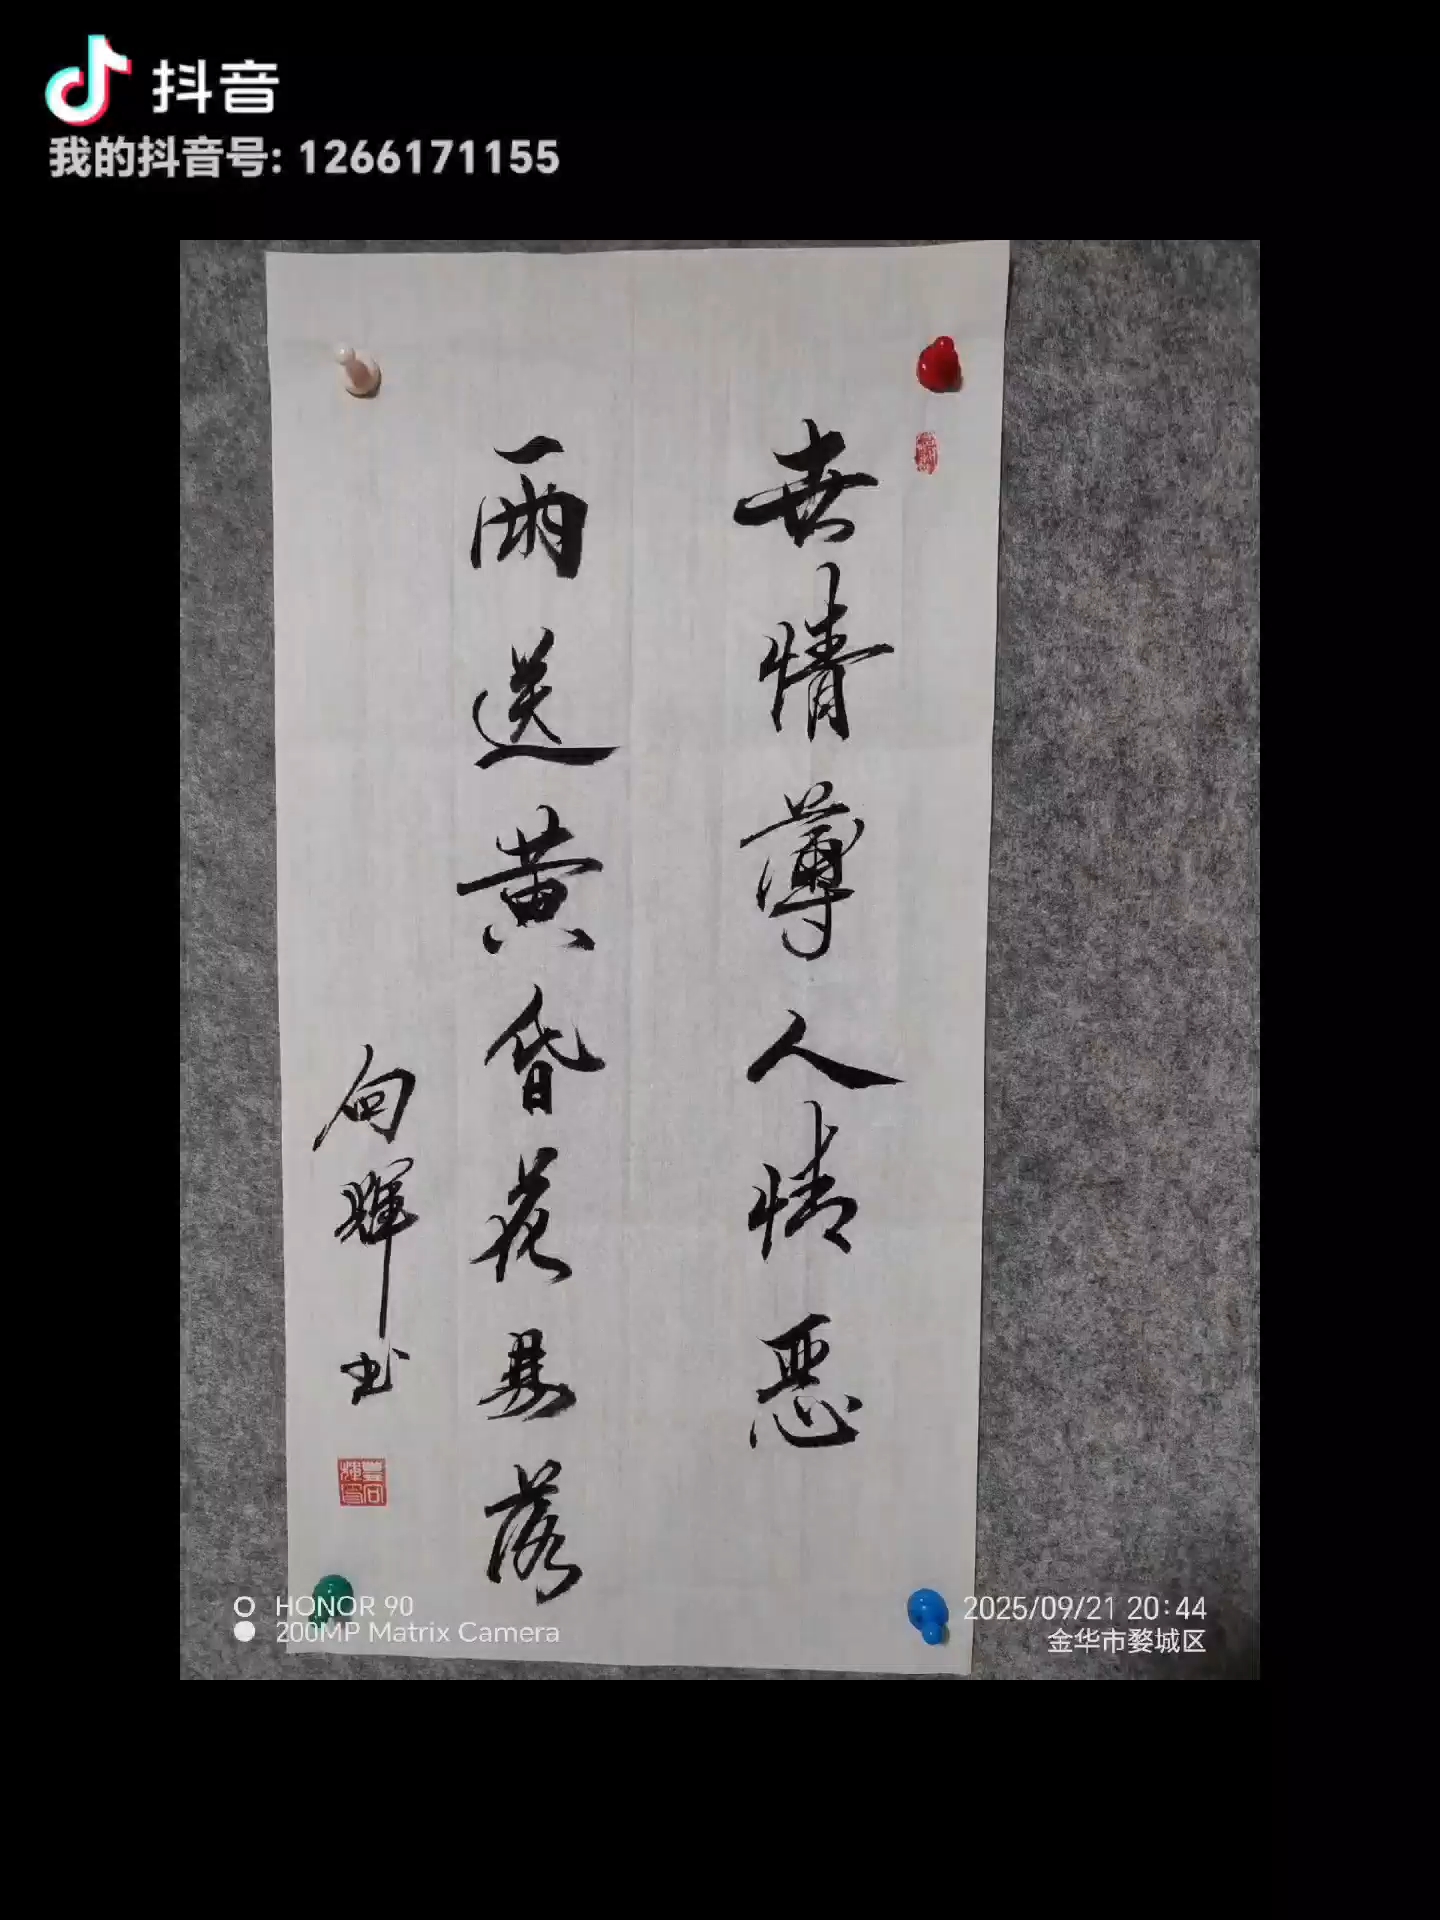 抖音
我的抖音号: 1266171155
世情薄人情恶
雨送黄昏花易落
向辉书
HONOR 90
200MP Matrix Camera
2025/09/21 20:44
金华市婺城区